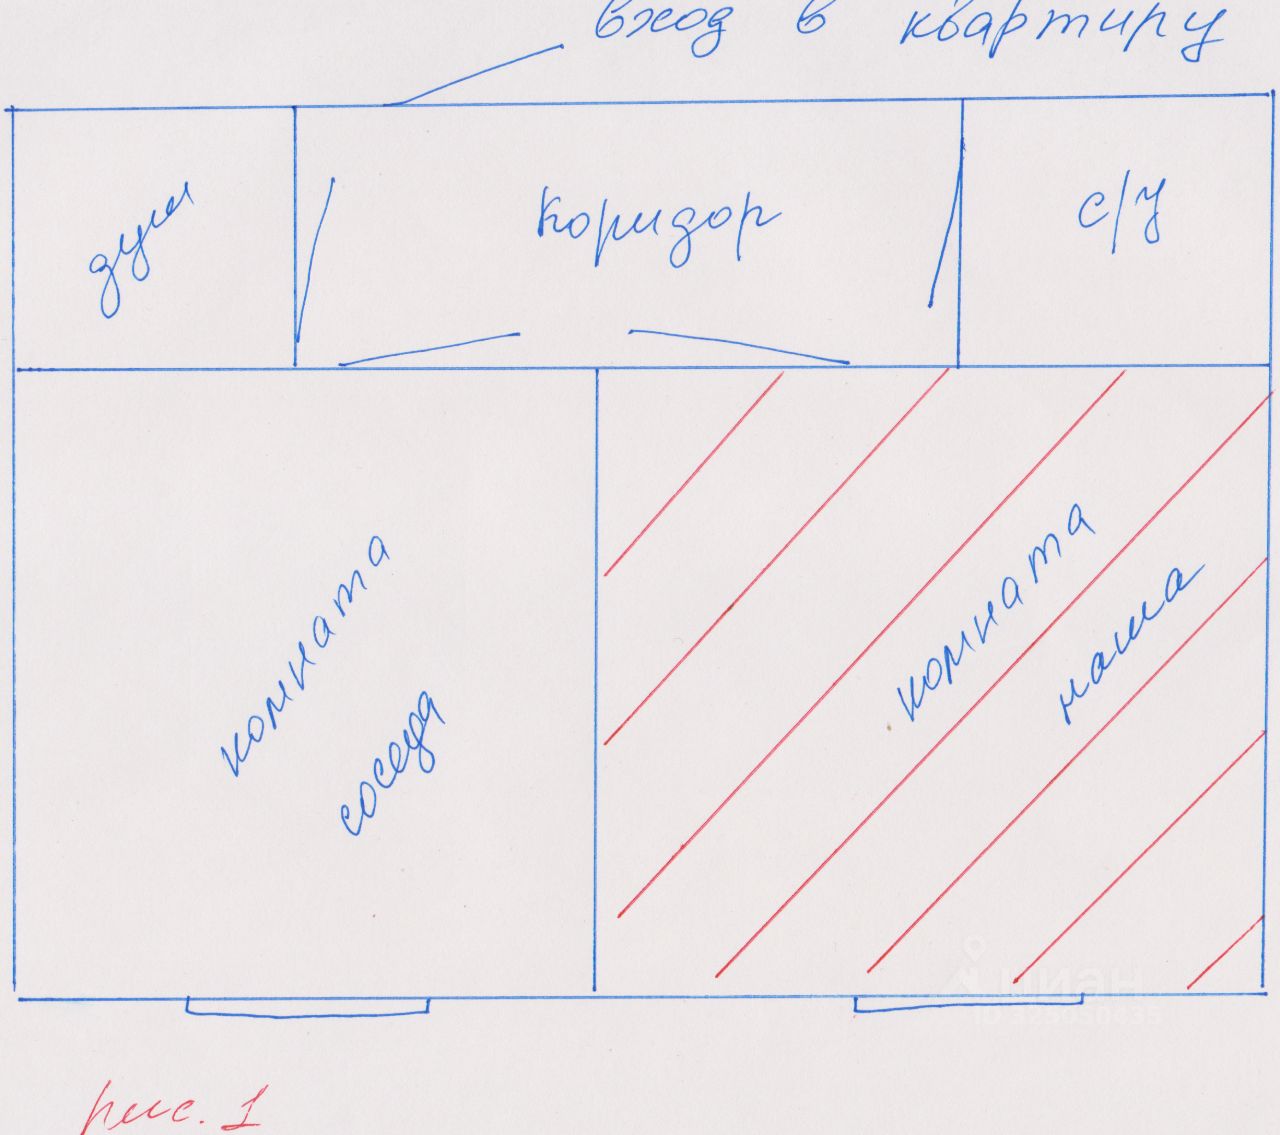 вход в квартиру
душ
коридор
с/у
комната
соседа
комната
наша
циан
рис. 1